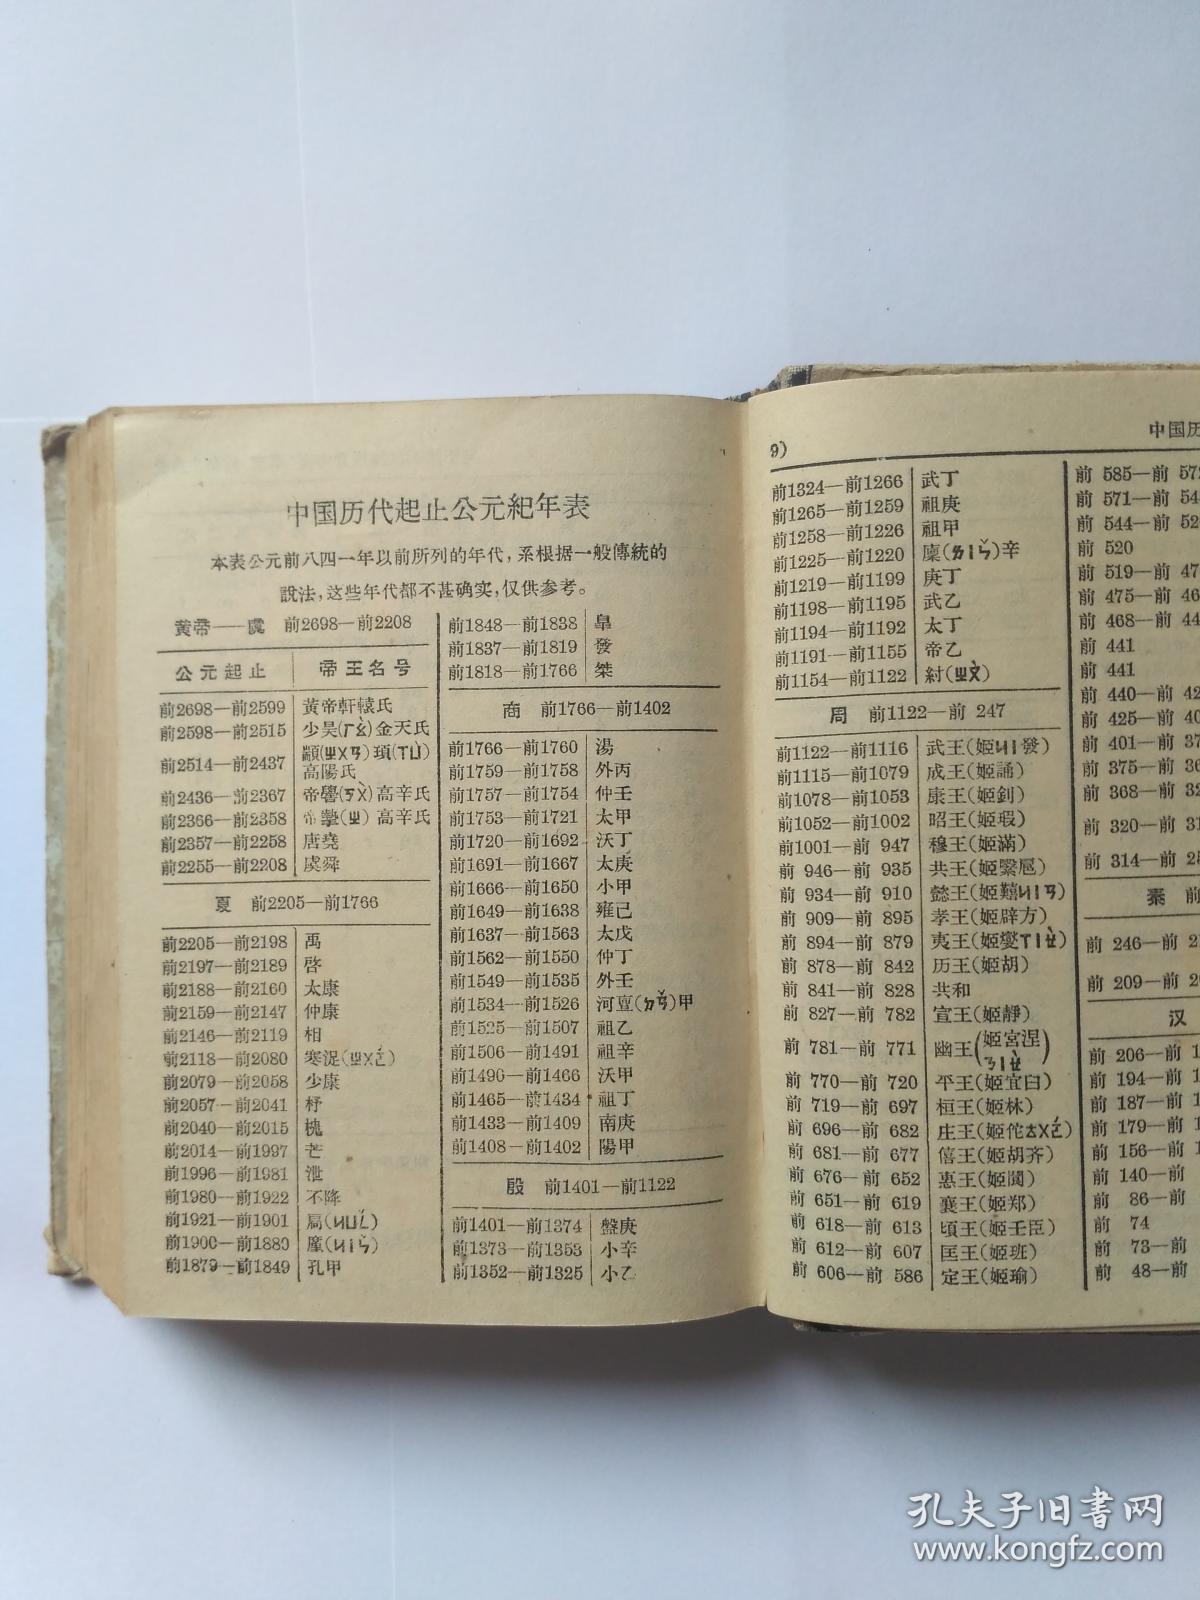 中国历代起止公元紀年表
本表公元前八四一年以前所列的年代，系根据一般傳統的
說法，这些年代都不甚确实，仅供参考。
黃帝——虞 前2698—前2208
公元起止 帝王名号
前2698—前2599 黃帝軒轅氏
前2598—前2515 少昊(ㄏㄠˋ)金天氏
前2514—前2437 顓(ㄓㄨㄢ)頊(ㄒㄩ)
高陽氏
前2436—前2367 帝嚳(ㄎㄨˋ)高辛氏
前2366—前2358 帝摯(ㄓˋ)高辛氏
前2357—前2258 唐堯
前2255—前2208 虞舜
夏 前2205—前1766
前2205—前2198 禹
前2197—前2189 啓
前2188—前2160 太康
前2159—前2147 仲康
前2146—前2119 相
前2118—前2080 寒浞(ㄓㄨㄛˊ)
前2079—前2058 少康
前2057—前2041 杼
前2040—前2015 槐
前2014—前1997 芒
前1996—前1981 泄
前1980—前1922 不降
前1921—前1901 扃(ㄐㄩㄥ)
前1900—前1880 廑(ㄐㄧㄣˇ)
前1879—前1849 孔甲
前1848—前1838 皐
前1837—前1819 發
前1818—前1766 桀
商 前1766—前1402
前1766—前1760 湯
前1759—前1758 外丙
前1757—前1754 仲壬
前1753—前1721 太甲
前1720—前1692 沃丁
前1691—前1667 太庚
前1666—前1650 小甲
前1649—前1638 雍己
前1637—前1563 太戊
前1562—前1550 仲丁
前1549—前1535 外壬
前1534—前1526 河亶(ㄉㄢˇ)甲
前1525—前1507 祖乙
前1506—前1491 祖辛
前1490—前1466 沃甲
前1465—前1434 祖丁
前1433—前1409 南庚
前1408—前1402 陽甲
殷 前1401—前1122
前1401—前1374 盤庚
前1373—前1353 小辛
前1352—前1325 小乙
9)
中国历
前1324—前1266 武丁
前1265—前1259 祖庚
前1258—前1226 祖甲
前1225—前1220 廩(ㄌㄧㄣˇ)辛
前1219—前1199 庚丁
前1198—前1195 武乙
前1194—前1192 太丁
前1191—前1155 帝乙
前1154—前1122 紂(ㄓㄡˋ)
周 前1122—前 247
前1122—前1116 武王(姬ㄐㄧ發)
前1115—前1079 成王(姬誦)
前1078—前1053 康王(姬釗)
前1052—前1002 昭王(姬瑕)
前1001—前 947 穆王(姬滿)
前 946—前 935 共王(姬繄扈)
前 934—前 910 懿王(姬囏ㄐㄧㄢ)
前 909—前 895 孝王(姬辟方)
前 894—前 879 夷王(姬燮ㄒㄧㄝˋ)
前 878—前 842 历王(姬胡)
前 841—前 828 共和
前 827—前 782 宣王(姬靜)
前 781—前 771 幽王(姬宮涅
ㄋㄧㄝˋ)
前 770—前 720 平王(姬宜臼)
前 719—前 697 桓王(姬林)
前 696—前 682 庄王(姬佗ㄊㄨㄛˊ)
前 681—前 677 僖王(姬胡齐)
前 676—前 652 惠王(姬閬)
前 651—前 619 襄王(姬郑)
前 618—前 613 頃王(姬壬臣)
前 612—前 607 匡王(姬班)
前 606—前 586 定王(姬瑜)
前 585—前 572
前 571—前 54
前 544—前 52
前 520
前 519—前 47
前 475—前 46
前 468—前 44
前 441
前 441
前 440—前 42
前 425—前 40
前 401—前 37
前 375—前 36
前 368—前 32
前 320—前 31
前 314—前 25
秦 前
前 246—前 2
前 209—前 20
汉
前 206—前 1
前 194—前 1
前 187—前 1
前 179—前 1
前 156—前 1
前 140—前
前 86—前
前 74
前 73—前
前 48—前
孔夫子旧书网
www.kongfz.com